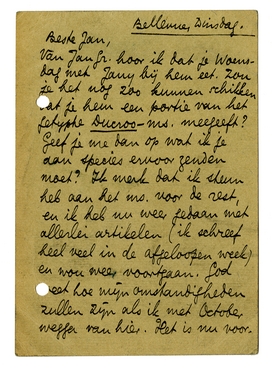 Bellevue, Dinsdag.
Beste Jan,
Van Jan Gr. hoor ik dat je Woens-
dag met Jany bij hem eet. Zou
je het nog zoo kunnen schikken
dat je hem een portie van het
getypte Ducroo-ms. meegeeft?
Geef je me dan op wat ik je
aan species ervoor zenden
moet? Ik merk dat ik steun
heb aan het ms. voor de rest,
en ik heb nu weer gedaan met
allerlei artikelen (ik schreef
heel veel in de afgeloopen week)
en wou weer voortgaan. God
weet hoe mijn omstandigheden
zullen zijn als ik met October
wegga van hier. Het is nu voor-